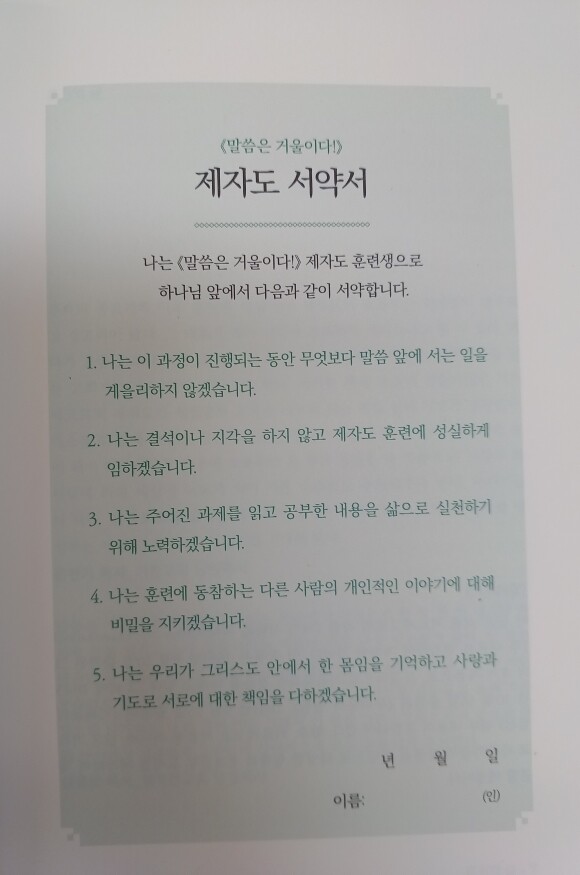 《말씀은 거울이다!》
제자도 서약서
나는 《말씀은 거울이다!》 제자도 훈련생으로
하나님 앞에서 다음과 같이 서약합니다.
1. 나는 이 과정이 진행되는 동안 무엇보다 말씀 앞에 서는 일을
게을리하지 않겠습니다.
2. 나는 결석이나 지각을 하지 않고 제자도 훈련에 성실하게
임하겠습니다.
3. 나는 주어진 과제를 읽고 공부한 내용을 삶으로 실천하기
위해 노력하겠습니다.
4. 나는 훈련에 동참하는 다른 사람의 개인적인 이야기에 대해
비밀을 지키겠습니다.
5. 나는 우리가 그리스도 안에서 한 몸임을 기억하고 사랑과
기도로 서로에 대한 책임을 다하겠습니다.
년 월 일
이름: (인)